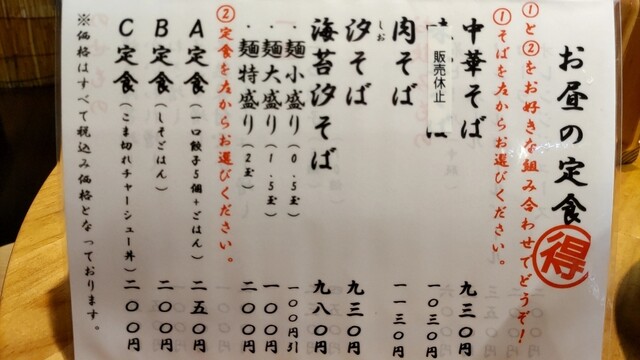 お昼の定食
得
①と②をお好きな組み合わせでどうぞ!
①そばを左からお選びください。
中華そば 九三〇円
販売休止 一〇三〇円
肉そば 一一三〇円
汐そば 九三〇円
しお
海苔汐そば 九八〇円
・麺小盛り(0.5玉) 一〇〇円引
・麺大盛り(1.5玉) 一〇〇円
・麺特盛り(2玉) 二〇〇円
②定食を左からお選びください。
A定食(一口餃子5個+ごはん) 二五〇円
B定食(しそごはん) 二〇〇円
C定食(こま切れチャーシュー丼) 二〇〇円
※価格はすべて税込み価格となっております。